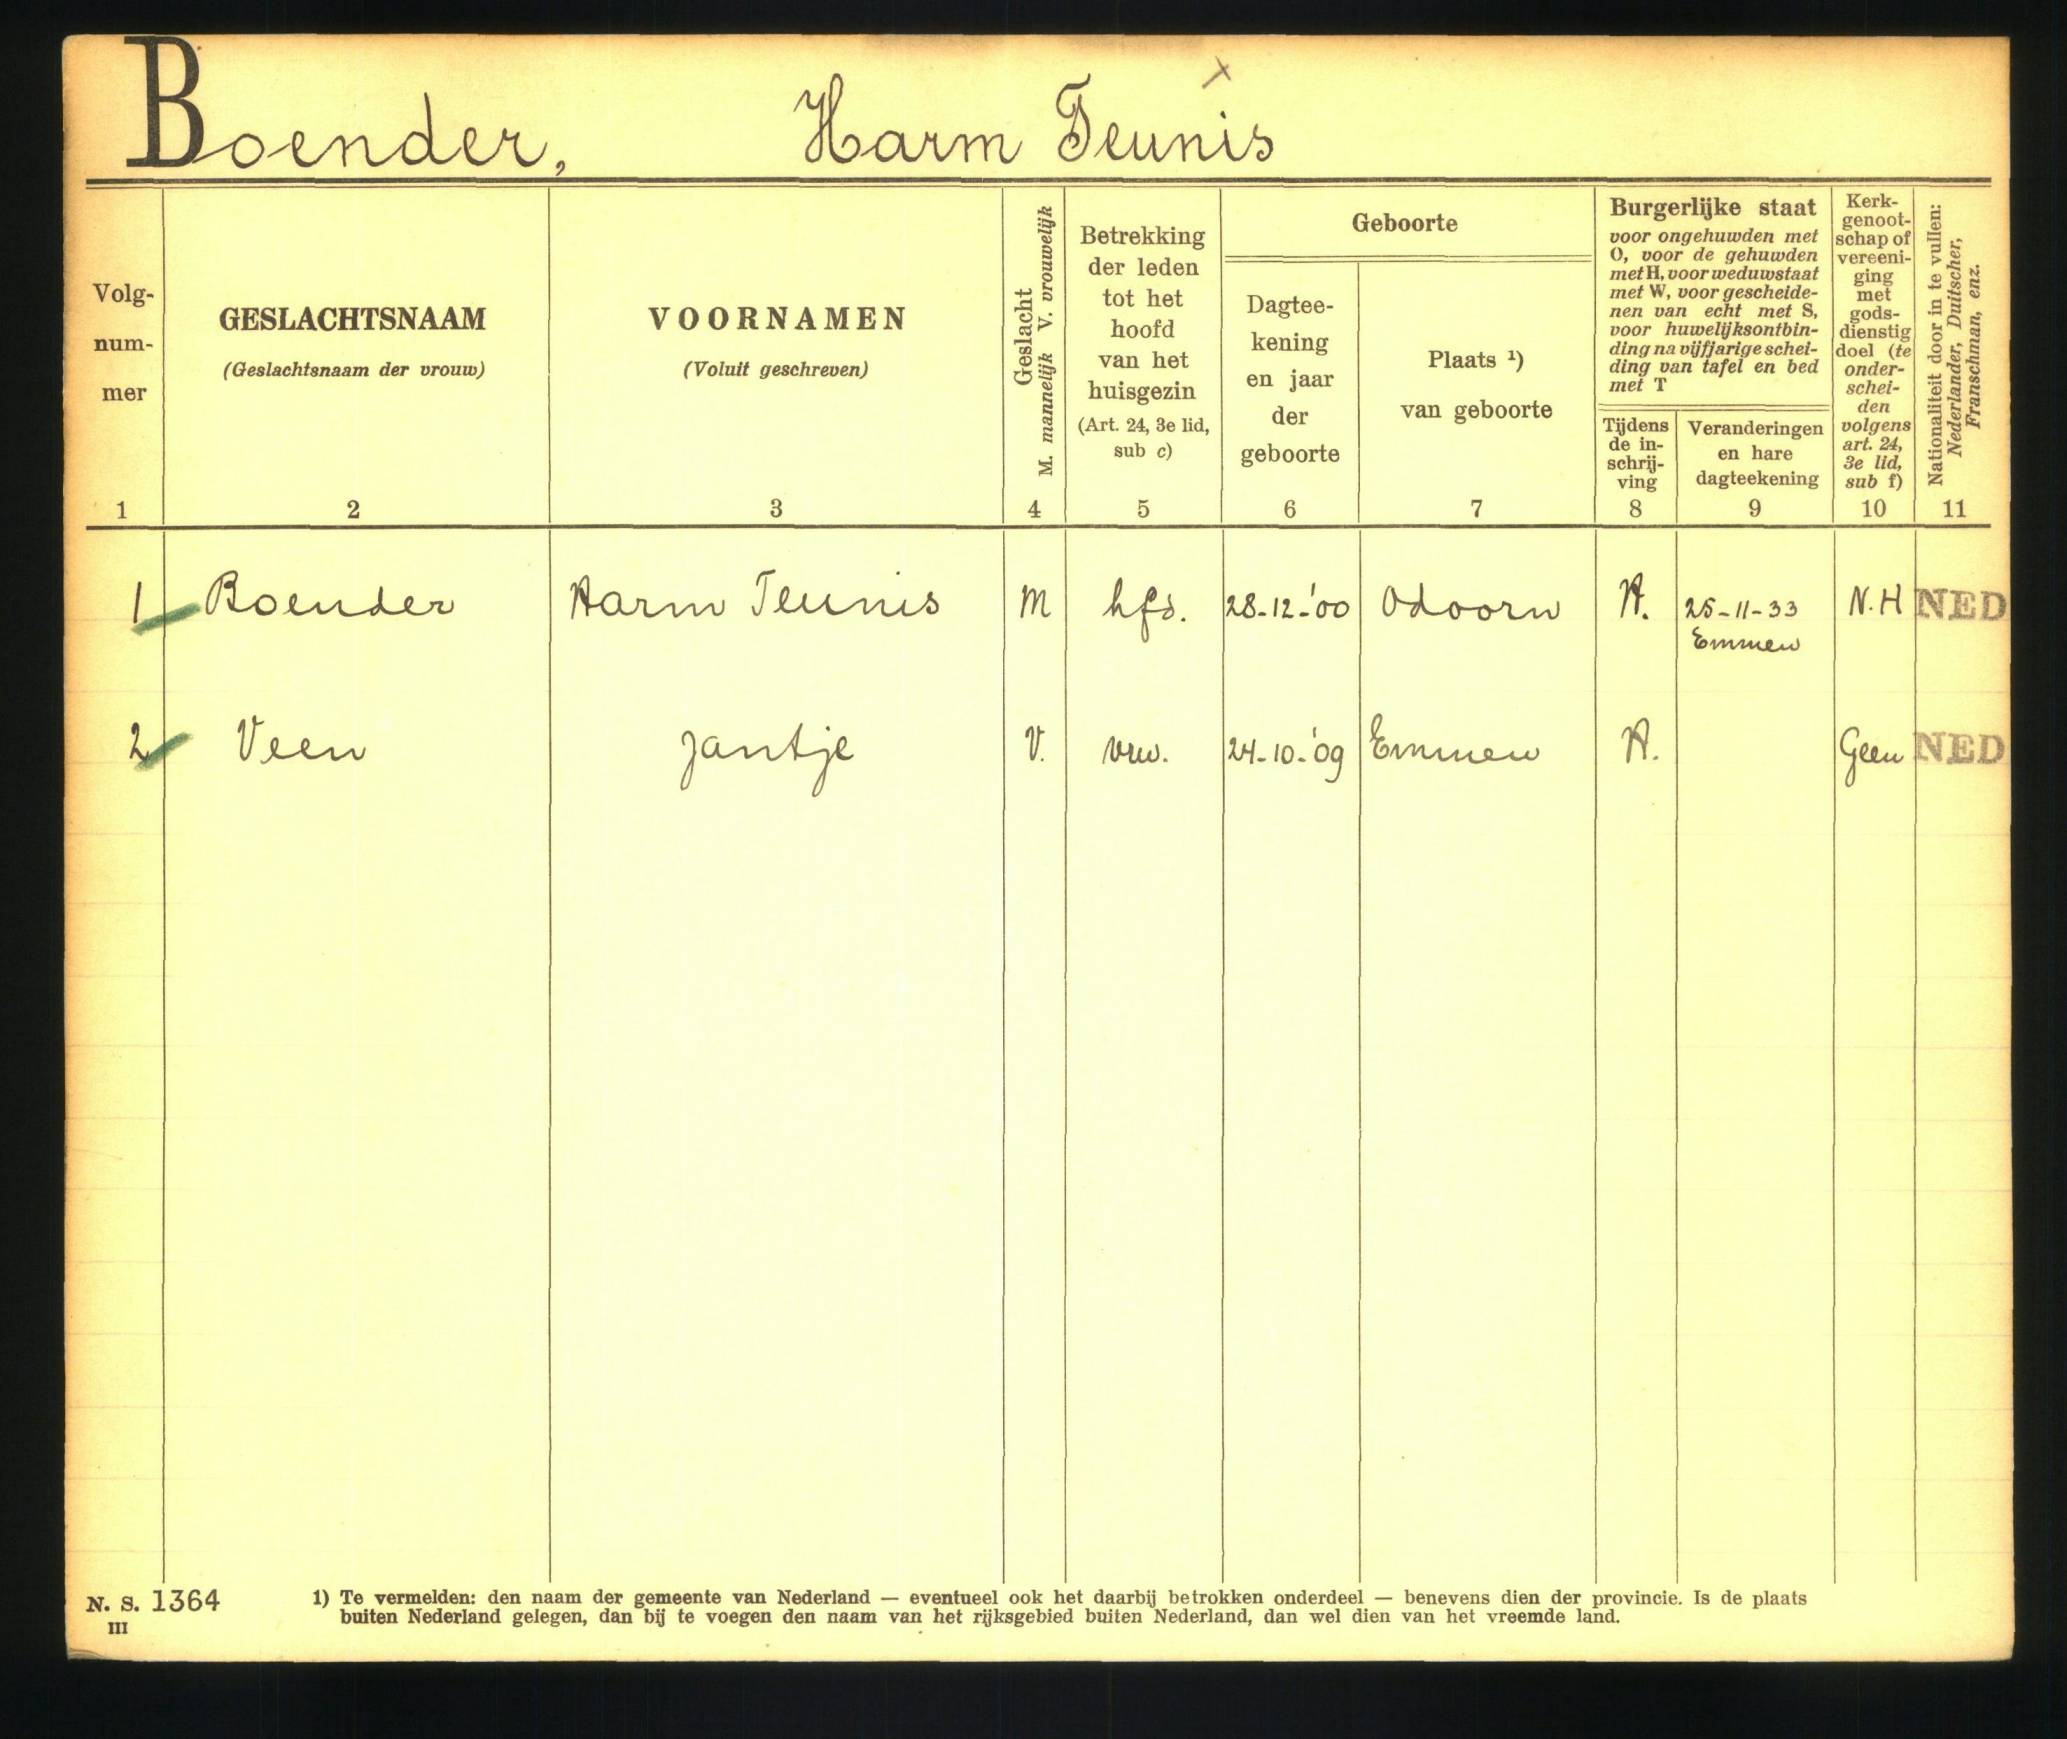 Boender, Harm Teunis
x
Volg-
num-
mer
1
GESLACHTSNAAM
(Geslachtsnaam der vrouw)
2
VOORNAMEN
(Voluit geschreven)
3
Geslacht
M. mannelijk V. vrouwelijk
4
Betrekking
der leden
tot het
hoofd
van het
huisgezin
(Art. 24, 3e lid,
sub c)
5
Geboorte
Dagtee-
kening
en jaar
der
geboorte
6
Plaats ¹)
van geboorte
7
Burgerlijke staat
voor ongehuwden met
O, voor de gehuwden
met H, voor weduwstaat
met W, voor gescheide-
nen van echt met S,
voor huwelijksontbin-
ding na vijfjarige schei-
ding van tafel en bed
met T
Tijdens
de in-
schrij-
ving
8
Veranderingen
en hare
dagteekening
9
Kerk-
genoot-
schap of
vereeni-
ging
met
gods-
dienstig
doel (te
onder-
schei-
den
volgens
art. 24,
3e lid,
sub f)
10
Nationaliteit door in te vullen:
Nederlander, Duitscher,
Franschman, enz.
11
1 Boender Harm Teunis M hfd. 28-12-'00 Odoorn H. 25-11-33 N.H NED
Emmen
2 Veen Jantje V. vrw. 24-10-'09 Emmen H. Geen NED
N. S. 1364
III
1) Te vermelden: den naam der gemeente van Nederland — eventueel ook het daarbij betrokken onderdeel — benevens dien der provincie. Is de plaats
buiten Nederland gelegen, dan bij te voegen den naam van het rijksgebied buiten Nederland, dan wel dien van het vreemde land.